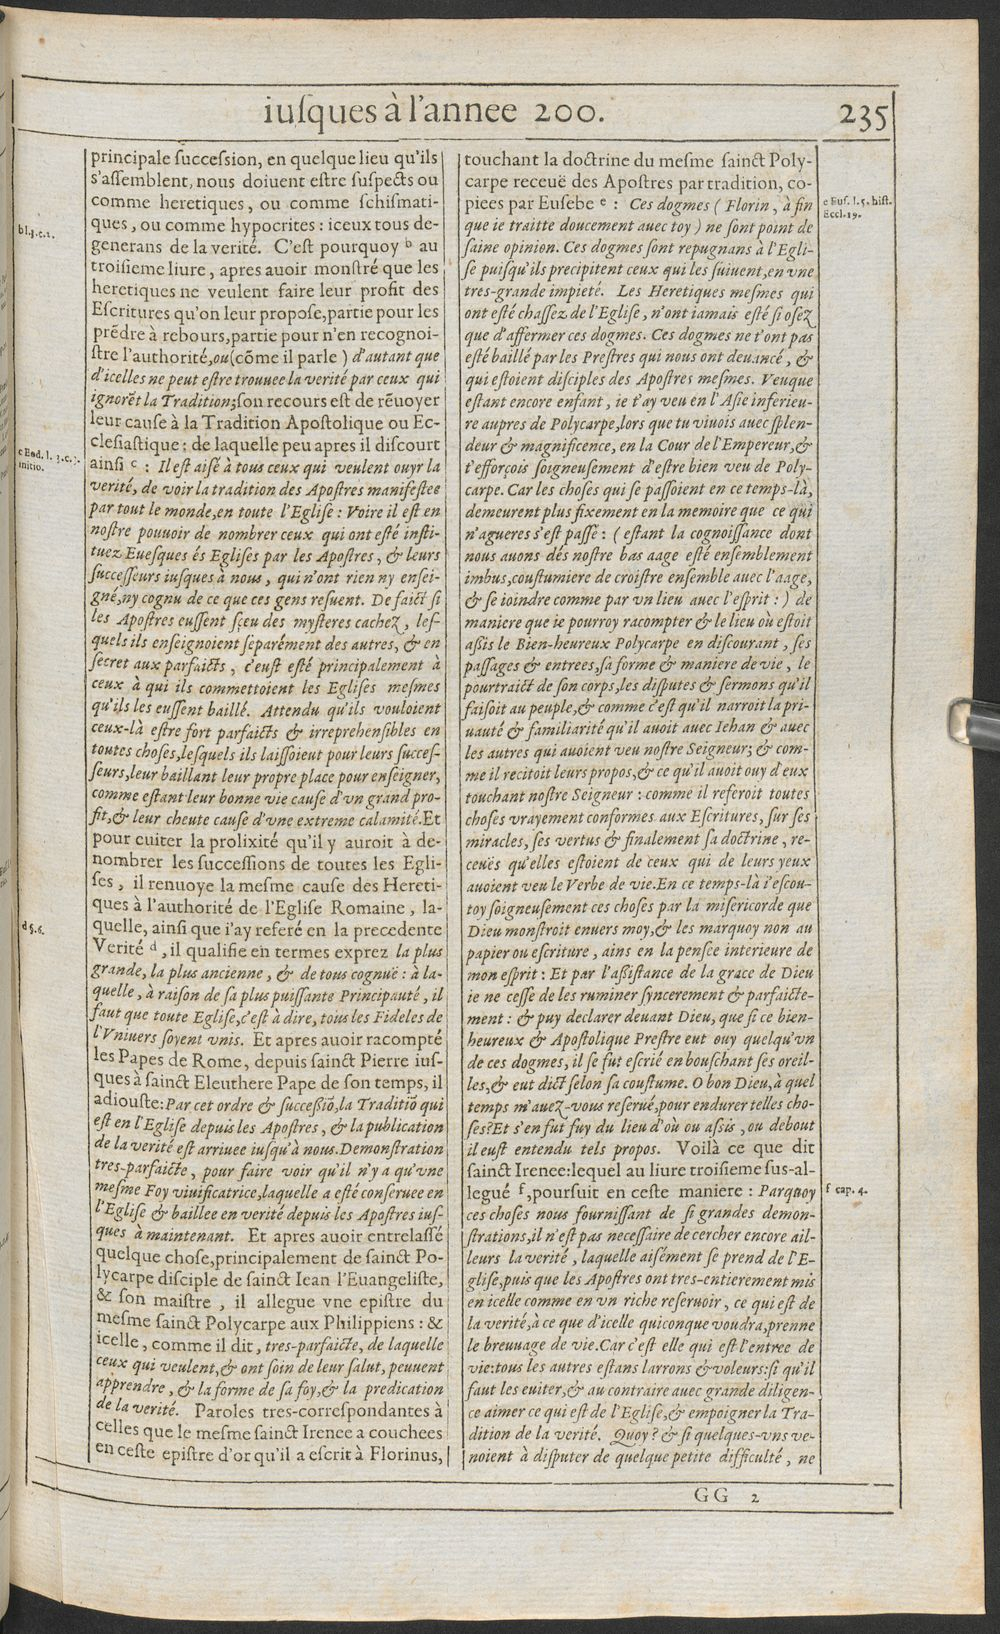 iuſques à l'annee 200.
235
principale ſucceſsion, en quelque lieu qu'ils
s'aſſemblent, nous doiuent eſtre ſuſpects ou
comme heretiques, ou comme ſchiſmati-
ques, ou comme hypocrites : iceux tous de-
generans de la verité. C'eſt pourquoy b au
troiſieme liure, apres auoir monſtré que les
heretiques ne veulent faire leur profit des
Eſcritures qu'on leur propoſe,partie pour les
prẽdre à rebours,partie pour n'en recognoi-
ſtre l'authorité,ou(cõme il parle ) d'autant que
d'icelles ne peut eſtre trouuee la verité par ceux qui
ignorẽt la Tradition;ſon recours eſt de rẽuoyer
leur cauſe à la Tradition Apoſtolique ou Ec-
cleſiaſtique : de laquelle peu apres il diſcourt
ainſi c : Il eſt aiſé à tous ceux qui veulent ouyr la
verité, de voir la tradition des Apoſtres manifeſtee
par tout le monde,en toute l'Egliſe : Voire il eſt en
noſtre pouuoir de nombrer ceux qui ont eſté inſti-
tuez Eueſques és Egliſes par les Apoſtres, & leurs
ſucceſſeurs iuſques à nous, qui n'ont rien ny enſei-
gné,ny cognu de ce que ces gens reſuent. De faict ſi
les Apoſtres euſſent ſçeu des myſteres cachez, leſ-
quels ils enſeignoient ſeparément des autres, & en
ſecret aux parfaicts, c'euſt eſté principalement à
ceux à qui ils commettoient les Egliſes meſmes
qu'ils les euſſent baillé. Attendu qu'ils vouloient
ceux-là eſtre fort parfaicts & irreprehenſibles en
toutes choſes,leſquels ils laiſſoient pour leurs ſucceſ-
ſeurs,leur baillant leur propre place pour enſeigner,
comme eſtant leur bonne vie cauſe d'vn grand pro-
fit,& leur cheute cauſe d'vne extreme calamité.Et
pour euiter la prolixité qu'il y auroit à de-
nombrer les ſucceſſions de toutes les Egli-
ſes, il renuoye la meſme cauſe des Hereti-
ques à l'authorité de l'Egliſe Romaine, la-
quelle, ainſi que i'ay referé en la precedente
Verité d, il qualifie en termes exprez la plus
grande, la plus ancienne, & de tous cognuë : à la-
quelle, à raiſon de ſa plus puiſſante Principauté, il
faut que toute Egliſe,c'eſt à dire, tous les Fideles de
l'Vniuers ſoyent vnis. Et apres auoir racompté
les Papes de Rome, depuis ſainct Pierre iuſ-
ques à ſainct Eleuthere Pape de ſon temps, il
adiouſte:Par cet ordre & ſucceßiõ,la Traditiõ qui
eſt en l'Egliſe depuis les Apoſtres, & la publication
de la verité eſt arriuee iuſqu'à nous.Demonſtration
tres-parfaicte, pour faire voir qu'il n'y a qu'vne
meſme Foy viuificatrice,laquelle a eſté conſeruee en
l'Egliſe & baillee en verité depuis les Apoſtres iuſ-
ques à maintenant. Et apres auoir entrelaſſé
quelque choſe,principalement de ſainct Po-
lycarpe diſciple de ſainct Iean l'Euangeliſte,
& ſon maiſtre, il allegue vne epiſtre du
meſme ſainct Polycarpe aux Philippiens : &
icelle, comme il dit, tres-parfaicte, de laquelle
ceux qui veulent,& ont ſoin de leur ſalut, peuuent
apprendre, & la forme de ſa foy,& la predication
de la verité. Paroles tres-correſpondantes à
celles que le meſme ſainct Irenee a couchees
en ceſte epiſtre d'or qu'il a eſcrit à Florinus,
b l.3.c.2.
c Eod. l. 3.c.3.
initio.
d §.6.
touchant la doctrine du meſme ſainct Poly-
carpe receuë des Apoſtres par tradition, co-
piees par Euſebe e : Ces dogmes ( Florin, à fin
que ie traitte doucement auec toy ) ne ſont point de
ſaine opinion. Ces dogmes ſont repugnans à l'Egli-
ſe puiſqu'ils precipitent ceux qui les ſuiuent,en vne
tres-grande impieté. Les Heretiques meſmes qui
ont eſté chaſſez de l'Egliſe, n'ont iamais eſté ſi oſez
que d'affermer ces dogmes. Ces dogmes ne t'ont pas
eſté baillé par les Preſtres qui nous ont deuancé, &
qui eſtoient diſciples des Apoſtres meſmes. Veuque
eſtant encore enfant, ie t'ay veu en l'Aſie inferieu-
re aupres de Polycarpe,lors que tu viuois auec ſplen-
deur & magnificence, en la Cour de l'Empereur,&
t'efforçois ſoigneuſement d'eſtre bien veu de Poly-
carpe. Car les choſes qui ſe paſſoient en ce temps-là,
demeurent plus fixement en la memoire que ce qui
n'agueres s'eſt paſſé : ( eſtant la cognoiſſance dont
nous auons dés noſtre bas aage eſté enſemblement
imbus,couſtumiere de croiſtre enſemble auec l'aage,
& ſe ioindre comme par vn lieu auec l'eſprit : ) de
maniere que ie pourroy racompter & le lieu où eſtoit
aßis le Bien-heureux Polycarpe en diſcourant, ſes
paſſages & entrees,ſa forme & maniere de vie, le
pourtraict de ſon corps,les diſputes & ſermons qu'il
faiſoit au peuple,& comme c'eſt qu'il narroit la pri-
uauté & familiarité qu'il auoit auec Iehan & auec
les autres qui auoient veu noſtre Seigneur; & com-
me il recitoit leurs propos,& ce qu'il auoit ouy d'eux
touchant noſtre Seigneur : comme il referoit toutes
choſes vrayement conformes aux Eſcritures, ſur ſes
miracles, ſes vertus & finalement ſa doctrine, re-
ceuës qu'elles eſtoient de ceux qui de leurs yeux
auoient veu le Verbe de vie.En ce temps-là i'eſcou-
toy ſoigneuſement ces choſes par la miſericorde que
Dieu monſtroit enuers moy,& les marquoy non au
papier ou eſcriture, ains en la penſee interieure de
mon eſprit : Et par l'aßiſtance de la grace de Dieu
ie ne ceſſe de les ruminer ſyncerement & parfaicte-
ment : & puy declarer deuant Dieu, que ſi ce bien-
heureux & Apoſtolique Preſtre eut ouy quelqu'vn
de ces dogmes, il ſe fut eſcrié en bouſchant ſes oreil-
les,& eut dict ſelon ſa couſtume. O bon Dieu,à quel
temps m'auez-vous reſerué,pour endurer telles cho-
ſes?Et s'en fut fuy du lieu d'où ou aſsis, ou debout
il euſt entendu tels propos. Voilà ce que dit
ſainct Irenee:lequel au liure troiſieme ſus-al-
legué f,pourſuit en ceſte maniere : Parquoy
ces choſes nous fourniſſant de ſi grandes demon-
ſtrations,il n'eſt pas neceſſaire de cercher encore ail-
leurs la verité, laquelle aiſément ſe prend de l'E-
gliſe,puis que les Apoſtres ont tres-entierement mis
en icelle comme en vn riche reſeruoir, ce qui eſt de
la verité,à ce que d'icelle quiconque voudra,prenne
le breuuage de vie.Car c'eſt elle qui eſt l'entree de
vie:tous les autres eſtans larrons & voleurs:ſi qu'il
faut les euiter,& au contraire auec grande diligen-
ce aimer ce qui eſt de l'Egliſe,& empoigner la Tra-
dition de la verité. Quoy? & ſi quelques-vns ve-
noient à diſputer de quelque petite difficulté, ne
e Euſ. l.5. hiſt.
Eccl.19.
f cap. 4.
GG 2